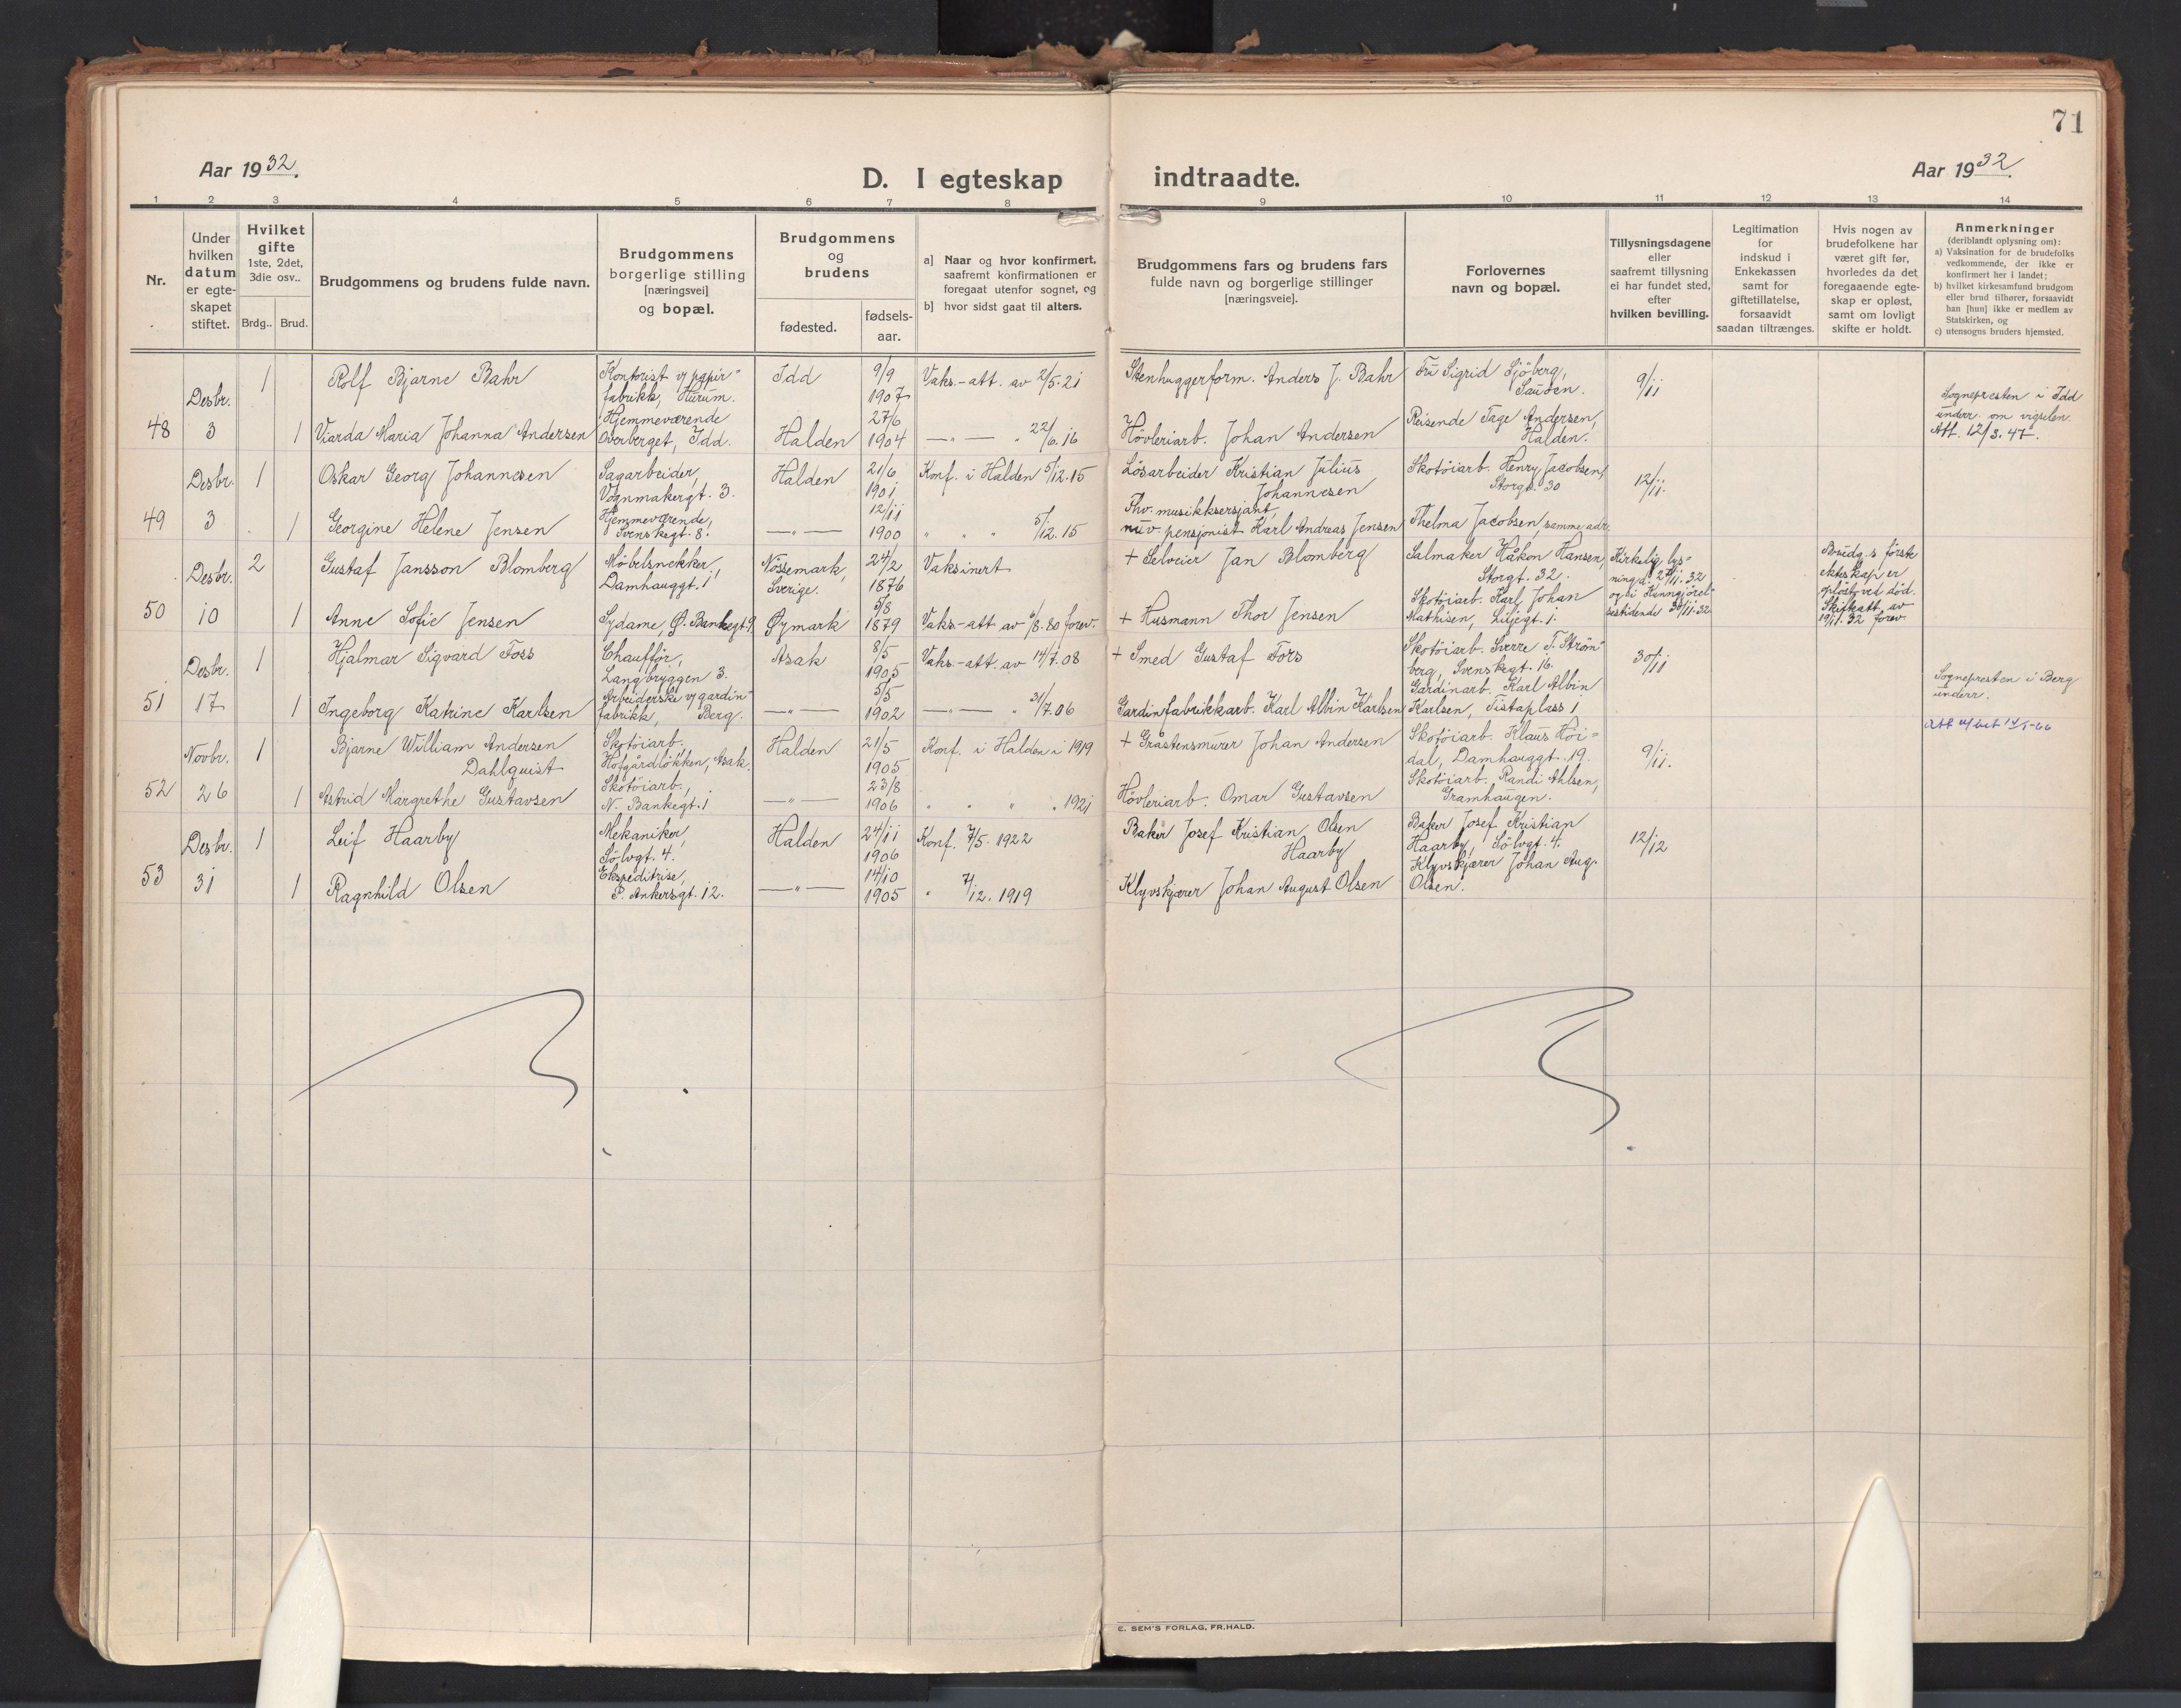 71
Aar 1932.
D. I egteskap indtraadte.
Aar 1932.
1 2 3 4 5 6 7 8 9 10 11 12 13 14
Nr.
Under hvilken datum er egte-skapet stiftet.
Hvilket gifte
1ste, 2det, 3die osv..
Brdg.. Brud.
Brudgommens og brudens fulde navn.
Brudgommens borgerlige stilling [næringsvei] og bopæl.
Brudgommens og brudens
fødested.
fødsels-aar.
a] Naar og hvor konfirmert, saafremt konfirmationen er foregaat utenfor sognet, og
b] hvor sidst gaat til alters.
Brudgommens fars og brudens fars fulde navn og borgerlige stillinger [næringsveie].
Forlovernes navn og bopæl.
Tillysningsdagene eller saafremt tillysning ei har fundet sted, efter hvilken bevilling.
Legitimation for indskud i Enkekassen samt for giftetillatelse, forsaavidt saadan tiltrænges.
Hvis nogen av brudefolkene har været gift før, hvorledes da det foregaaende egte-skap er opløst, samt om lovligt skifte er holdt.
Anmerkninger
(deriblandt oplysning om):
a) Vaksination for de brudefolks vedkommende, der ikke er konfirmert her i landet;
b) hvilket kirkesamfund brudgom eller brud tilhører, forsaavidt han [hun] ikke er medlem av Statskirken, og
c) utensogns bruders hjemsted.
48 Desbr. 3
1 Rolf Bjarne Bahr
Kontorist v/ papir-fabrikk, Hurum.
Idd 9/9 1907
Vaks.-att. av 2/5.21
Stenhuggerform. Anders J. Bahr
Fru Sigrid Sjöberg, Sauöen.
9/11
1 Viarda Maria Johanna Andersen
Hjemmeværende Overberget, Idd.
Halden 27/6 1904
—"— " 22/6.16
Hövleriarb. Johan Andersen
Reisende Tage Andersen, Halden.
Sognepresten i Idd underr. om vigselen.
Att. 12/3.47.
49 Desbr. 3
1 Oskar Georg Johannesen
Sagarbeider, Vognmakergt. 3.
Halden 21/6 1901
Konf. i Halden 5/12.15
Lösarbeider Kristian Julius Johannesen
Skotöiarb. Henry Jacobsen, Storgt. 30
12/11.
1 Georgine Helene Jensen
Hjemmeværende, Svenskegt. 8.
—"— 12/11 1900
" " " 5/12.15
Fhv. musikksersjant, nuv. pensjonist Karl Andreas Jensen
Thelma Jacobsen, samme adr.
50 Desbr. 10
2 Gustaf Jansson Blomberg
Möbelsnekker, Damhauggt. 1
Nössemark, Sverige. 24/2 1876
Vaksinert
+ Selveier Jan Blomberg
Salmaker Håkon Hansen, Storgt. 32.
Kirkelig lys-ning d. 27/11.32 og i Kunngjörel-sestidende 30/11.32
Brudg.s förste ekteskap er oplöst ved död. Skifteatt. av 19/11.32 forev.
1 Anne Sofie Jensen
Sydame, Ø. Bankegt 9.
Øymark 5/8 1879
Vaks.-att av 6/8.80 forev.
+ Husmann Thor Jensen
Skotöiarb. Karl Johan Mathisen, Liljegt. 1.
51 Desbr. 17
1 Hjalmar Sigvard Foss
Chaufför, Langbryggen 3.
Asak 8/5 1905
Vaks.-att. av 14/7.08
+ Smed Gustaf Fors
Skotöiarb. Sverre F. Ström-berg, Svenskegt. 16.
30/11
1 Ingeborg Katrine Karlsen
Arbeiderske v/ gardin-fabrikk, Berg.
—"— 5/5 1902
—"— " 31/7.06
Gardinfabrikkarb. Karl Albin Karlsen
Gardinarb. Karl Albin Karlsen, Tistaplass 1
Sognepresten i Berg underr.
52 Novbr. 26
1 Bjarne William Andersen Dahlquist
Skotöiarb. Hofgårdlökken, Asak.
Halden 21/5 1905
Konf. i Halden i 1919
+ Gråstensmurer Johan Andersen
Skotöiarb. Klaus Höi-dal, Damhauggt. 19.
9/11.
1 Astrid Margrethe Gustavsen
Skotöiarb., N. Bankegt. 1
—"— 23/8 1906
" " " " 1921
Hövleriarb. Omar Gustavsen
Skotöiarb. Randi Ahlsen, Gramhaugen.
53 Desbr. 31
1 Leif Haarby
Mekaniker, Sölvgt. 4.
Halden 24/11 1906
Konf. 7/5. 1922
Baker Josef Kristian Olsen Haarby
Baker Josef Kristian Haarby, Sölvgt. 4.
12/12
1 Ragnhild Olsen
Ekspeditrise, P. Ankersgt. 12.
—"— 14/10 1905
" 7/12. 1919
Klyvskjærer Johan August Olsen
Klyvskjærer Johan Aug. Olsen.
E. SEM'S FORLAG, FR.HALD.